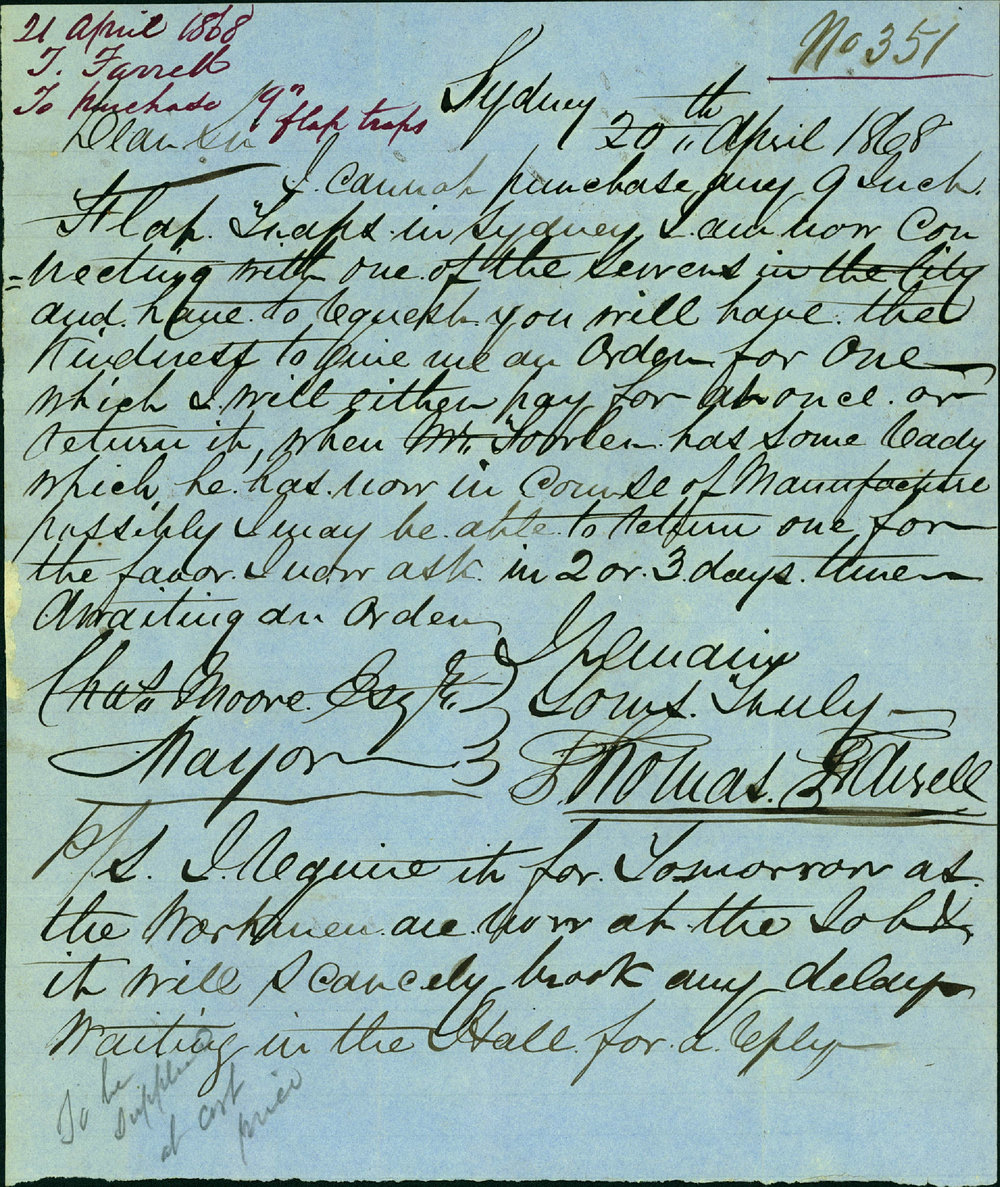 21 April 1868
T. Farrell
To purchase 9"
flap traps
No 351
Sydney
20th April 1868
Dear Sir
I cannot purchase any 9 Inch
Flap Traps in Sydney I am now Con
=necting with one of the sewers in the City
and have to request you will have the
Kindness to give me an Order for One
which I will either pay for at once or
return it, when Mr Fowler has some ready
which he has now in Course of Manufacture
possibly I may be able to return one for
the favor I now ask in 2 or 3 days time
Awaiting an Order
I Remain
Chas Moore Esqre
Yours Truly
Mayor
Thomas Farrell
P/S. I require it for Tomorrow as
the Workmen are now at the Job &
it will scarcely brook any delay
Waiting in the Hall for a reply
To be
supplied
at cost
price